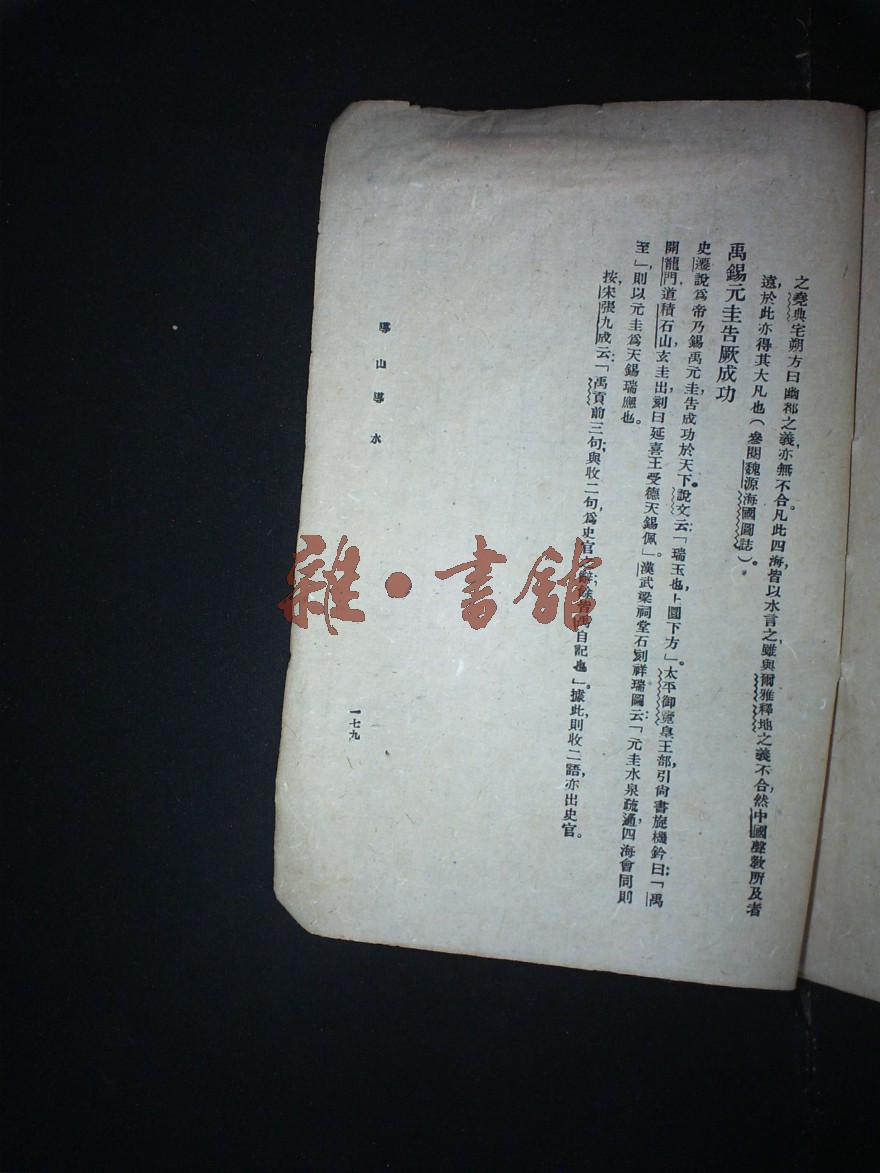 之，堯典宅朔方曰幽都之義，亦無不合。凡此四海，皆以水言之，雖與爾雅釋地之義不合，然中國聲教所及者
遠，於此亦得其大凡也（參閱魏源海國圖誌）。
禹錫元圭告厥成功
史遷說爲帝乃錫禹元圭，告成功於天下。說文云：「瑞玉也，上圜下方」。太平御覽皇王部，引尙書旋機鈐曰：「禹
開龍門，道積石山，玄圭出，刻曰延喜王受德天錫佩」漢武梁祠堂石刻祥瑞圖云：「元圭水泉疏通，四海會同則
至，」則以元圭爲天錫瑞應也。
按，宋張九成云：「禹貢前三句，與收二句，爲史官辭；餘皆禹自記也」。據此，則收二語，亦出史官。
導山導水
一七九
雜·書館